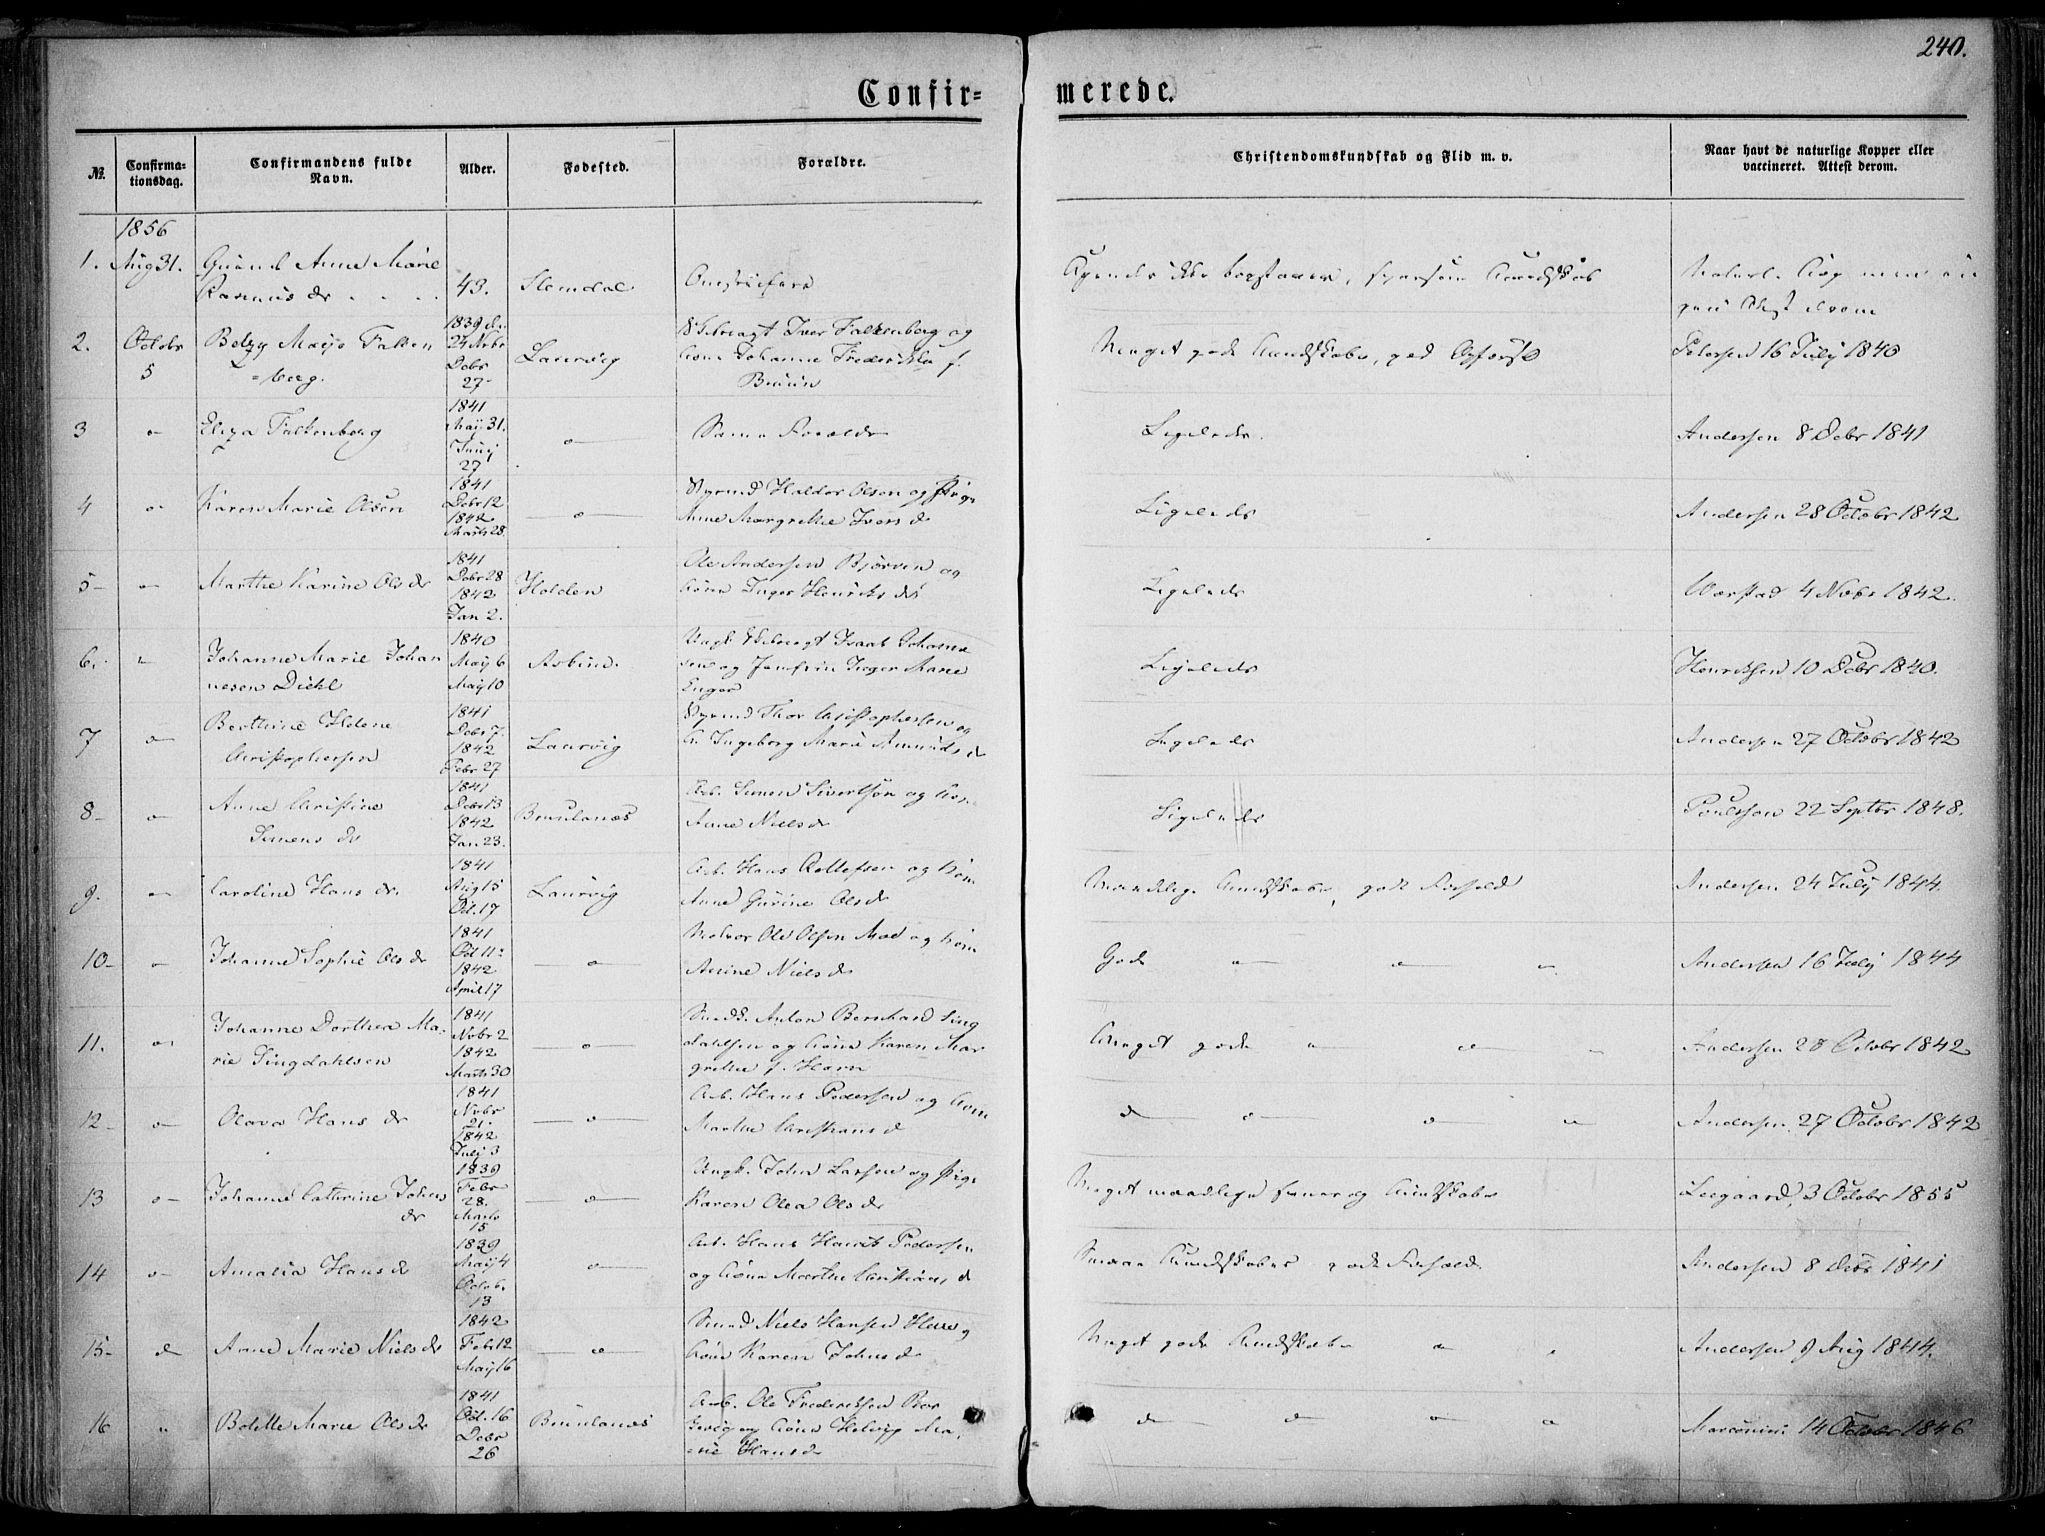 240.
Confir- merede.
№. Confirma-tionsdag. Confirmandens fulde Navn. Alder. Fødested. Forældre. Christendomskundskab og Flid m. v. Naar havt de naturlige Kopper eller vaccineret. Attest derom.
1856
1. Aug 31. Anne Marie
Rasmus dr 43. Slemdal
2. Octobr 5 Betzy Maije Falken
berg. 1839 24 Nvbr Debr 27 Laurvig Iver Falkenberg og
Kone Johanne Fredrikke f.
Bruun Meget gode Kundskaber, god Opførsel Petersen 16 July 1840
3 Eliza Falkenberg 1841 Maij 31. Junij 27 Samme Forældre Ligeledes. Andersen 8 Debr 1841
4 Karen Marie Olsen 1841 Debr 12 1842 Marts 28 Haldor Olsen og Pige
Anne Margrethe Ivers d Ligeleds Andersen 28 Octobr 1842
5 Marthe Karine Ols dr 1841 Debr 28 1842 Jan 2. Holden Ole Andersen Bjørven og
Kone Inger Henriks dr Ligeleds 4 Nvbr 1842.
6. Johanne Marie Johan
nesen Diehl 1840 Maij 6 Maij 10 Isaak Johanne
sen og Inger Marie
Enger Ligeleds Henriksen 10 Debr 1840.
7 Berthine Helene
Christophersen 1841 Debr 7. 1842 Febr 27 Laurvig Thor Christophersen og
K. Ingeborg Marie Amunds d Ligeleds Andersen 27 Octobr 1842
8 Anne Christine
Simens dr 1841 Debr 13 1842 Jan 23. Brunlanæs Arb. Simen Sivertsøn og Kone
Anne Niels dr Ligeleds Poulsson 22 Septbr 1848.
9. Caroline Hans dr. 1841 Aug 15 Oct. 17 Laurvig Arb. Hans Rollefsen og Kone
Anne Gurine Ols dr Maadelige Kundskaber, godt Forhold Andersen 24 July 1844.
10 Johanne Sophie Ols dr 1841 Oct 11 1842 April 17 Ole Olsen Moe og Kone
Anine Niels dr Gode Andersen 16 July 1844
11. Johanne Dorthea Ma-
rie Lingdahlsen 1841 Nvbr 2 1842 Marts 30 Snedk. Anton Bernhard Ling
dahlsen og Kone Karen Mar
grethe f. Horn Meget gode Andersen 28 Octobr 1842
12 Olava Hans dr 1841 Nvbr 21. 1842 July 3 Arb. Hans Pedersen og Kone
Marthe Christians d Andersen 27 Octobr 1842
13 Johanne Cathrine Johns
dr 1839 Febr 28. Marts 15 Ungk. John Larsen og Pige
Karen Olea Ols dr Meget maadelige Kundskaber Leegaard, 3 Octobr 1855
14 Amalia Hans d 1839 Maij 4 Octob. 13 Arb. Hans Henrik Pedersen
og Kone Marthe Christians d Smaae Kundskaber godt Forhold Andersen 8 Debr 1841
15 Anne Marie Niels dr 1842 Febr 12 Maij 16 Smed Niels Hansen Herre og
Kone Karen Johns d Meget gode Kundskaber Andersen 9 Aug 1844.
16 Bolette Marie Ols dr 1841 Oct. 16 Debr 26 Brunlanæs Arb. Ole Fredriksen
og Kone Helvig Ma-
rie Hans d 14 October 1846